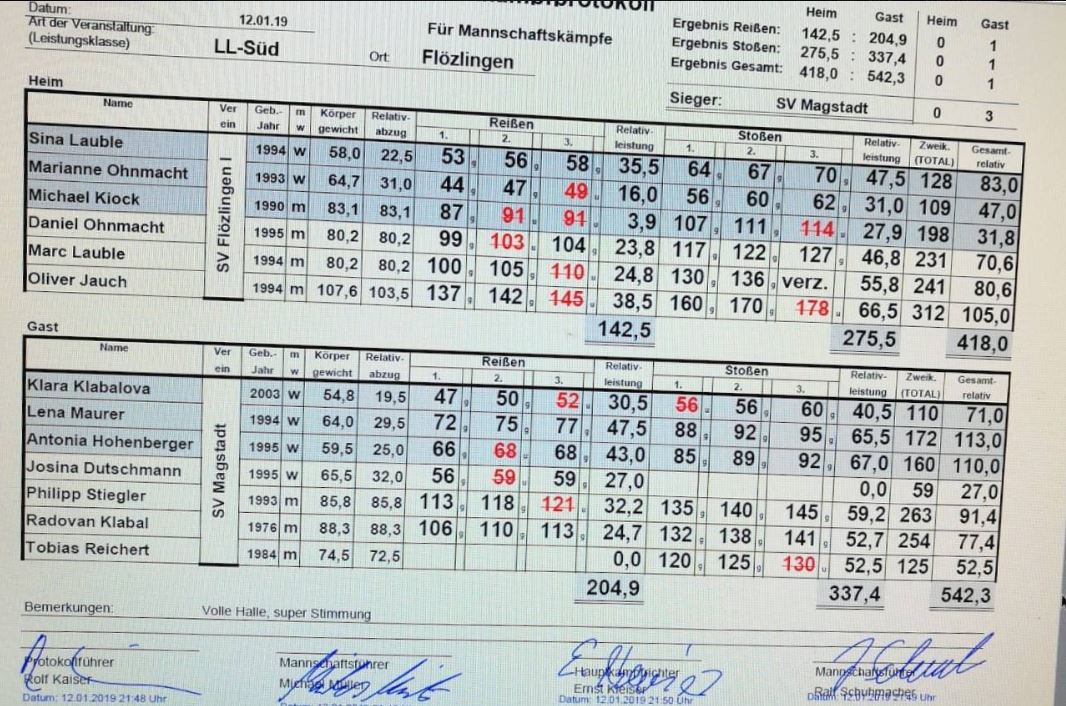 Datum: 12.01.19
Art der Veranstaltung:
(Leistungsklasse) LL-Süd
Für Mannschaftskämpfe
Ort: Flözlingen
Heim Gast Heim Gast
Ergebnis Reißen: 142,5 : 204,9 0 1
Ergebnis Stoßen: 275,5 : 337,4 0 1
Ergebnis Gesamt: 418,0 : 542,3 0 1
Sieger: SV Magstadt 0 3
Heim
Name Ver ein Geb.- Jahr m w Körper gewicht Relativ- abzug Reißen 1. 2. 3. Relativ- leistung Stoßen 1. 2. 3. Relativ- leistung Zweik. (TOTAL) Gesamt- relativ
SV Flözlingen I
Sina Lauble 1994 w 58,0 22,5 53 g 56 g 58 g 35,5 64 g 67 g 70 g 47,5 128 83,0
Marianne Ohnmacht 1993 w 64,7 31,0 44 g 47 g 49 u 16,0 56 g 60 g 62 g 31,0 109 47,0
Michael Kiock 1990 m 83,1 83,1 87 g 91 u 91 u 3,9 107 g 111 g 114 u 27,9 198 31,8
Daniel Ohnmacht 1995 m 80,2 80,2 99 g 103 u 104 g 23,8 117 g 122 g 127 g 46,8 231 70,6
Marc Lauble 1994 m 80,2 80,2 100 g 105 g 110 u 24,8 130 g 136 g verz. 55,8 241 80,6
Oliver Jauch 1994 m 107,6 103,5 137 g 142 g 145 u 38,5 160 g 170 g 178 u 66,5 312 105,0
142,5 275,5 418,0
Gast
Name Ver ein Geb.- Jahr m w Körper gewicht Relativ- abzug Reißen 1. 2. 3. Relativ- leistung Stoßen 1. 2. 3. Relativ- leistung Zweik. (TOTAL) Gesamt- relativ
SV Magstadt
Klara Klabalova 2003 w 54,8 19,5 47 g 50 g 52 u 30,5 56 u 56 g 60 g 40,5 110 71,0
Lena Maurer 1994 w 64,0 29,5 72 g 75 g 77 g 47,5 88 g 92 g 95 g 65,5 172 113,0
Antonia Hohenberger 1995 w 59,5 25,0 66 g 68 u 68 g 43,0 85 g 89 g 92 g 67,0 160 110,0
Josina Dutschmann 1995 w 65,5 32,0 56 g 59 u 59 g 27,0 0,0 59 27,0
Philipp Stiegler 1993 m 85,8 85,8 113 g 118 g 121 u 32,2 135 g 140 g 145 g 59,2 263 91,4
Radovan Klabal 1976 m 88,3 88,3 106 g 110 g 113 g 24,7 132 g 138 g 141 g 52,7 254 77,4
Tobias Reichert 1984 m 74,5 72,5 0,0 120 g 125 g 130 u 52,5 125 52,5
204,9 337,4 542,3
Bemerkungen: Volle Halle, super Stimmung
Protokollführer Mannschaftsführer Hauptkampfrichter Mannschaftsführer
Rolf Kaiser Michael Müller Ernst Kleiser Ralf Schuhmacher
Datum: 12.01.2019 21:48 Uhr Datum: 12.01.2019 21:50 Uhr Datum: 12.01.2019 21:49 Uhr